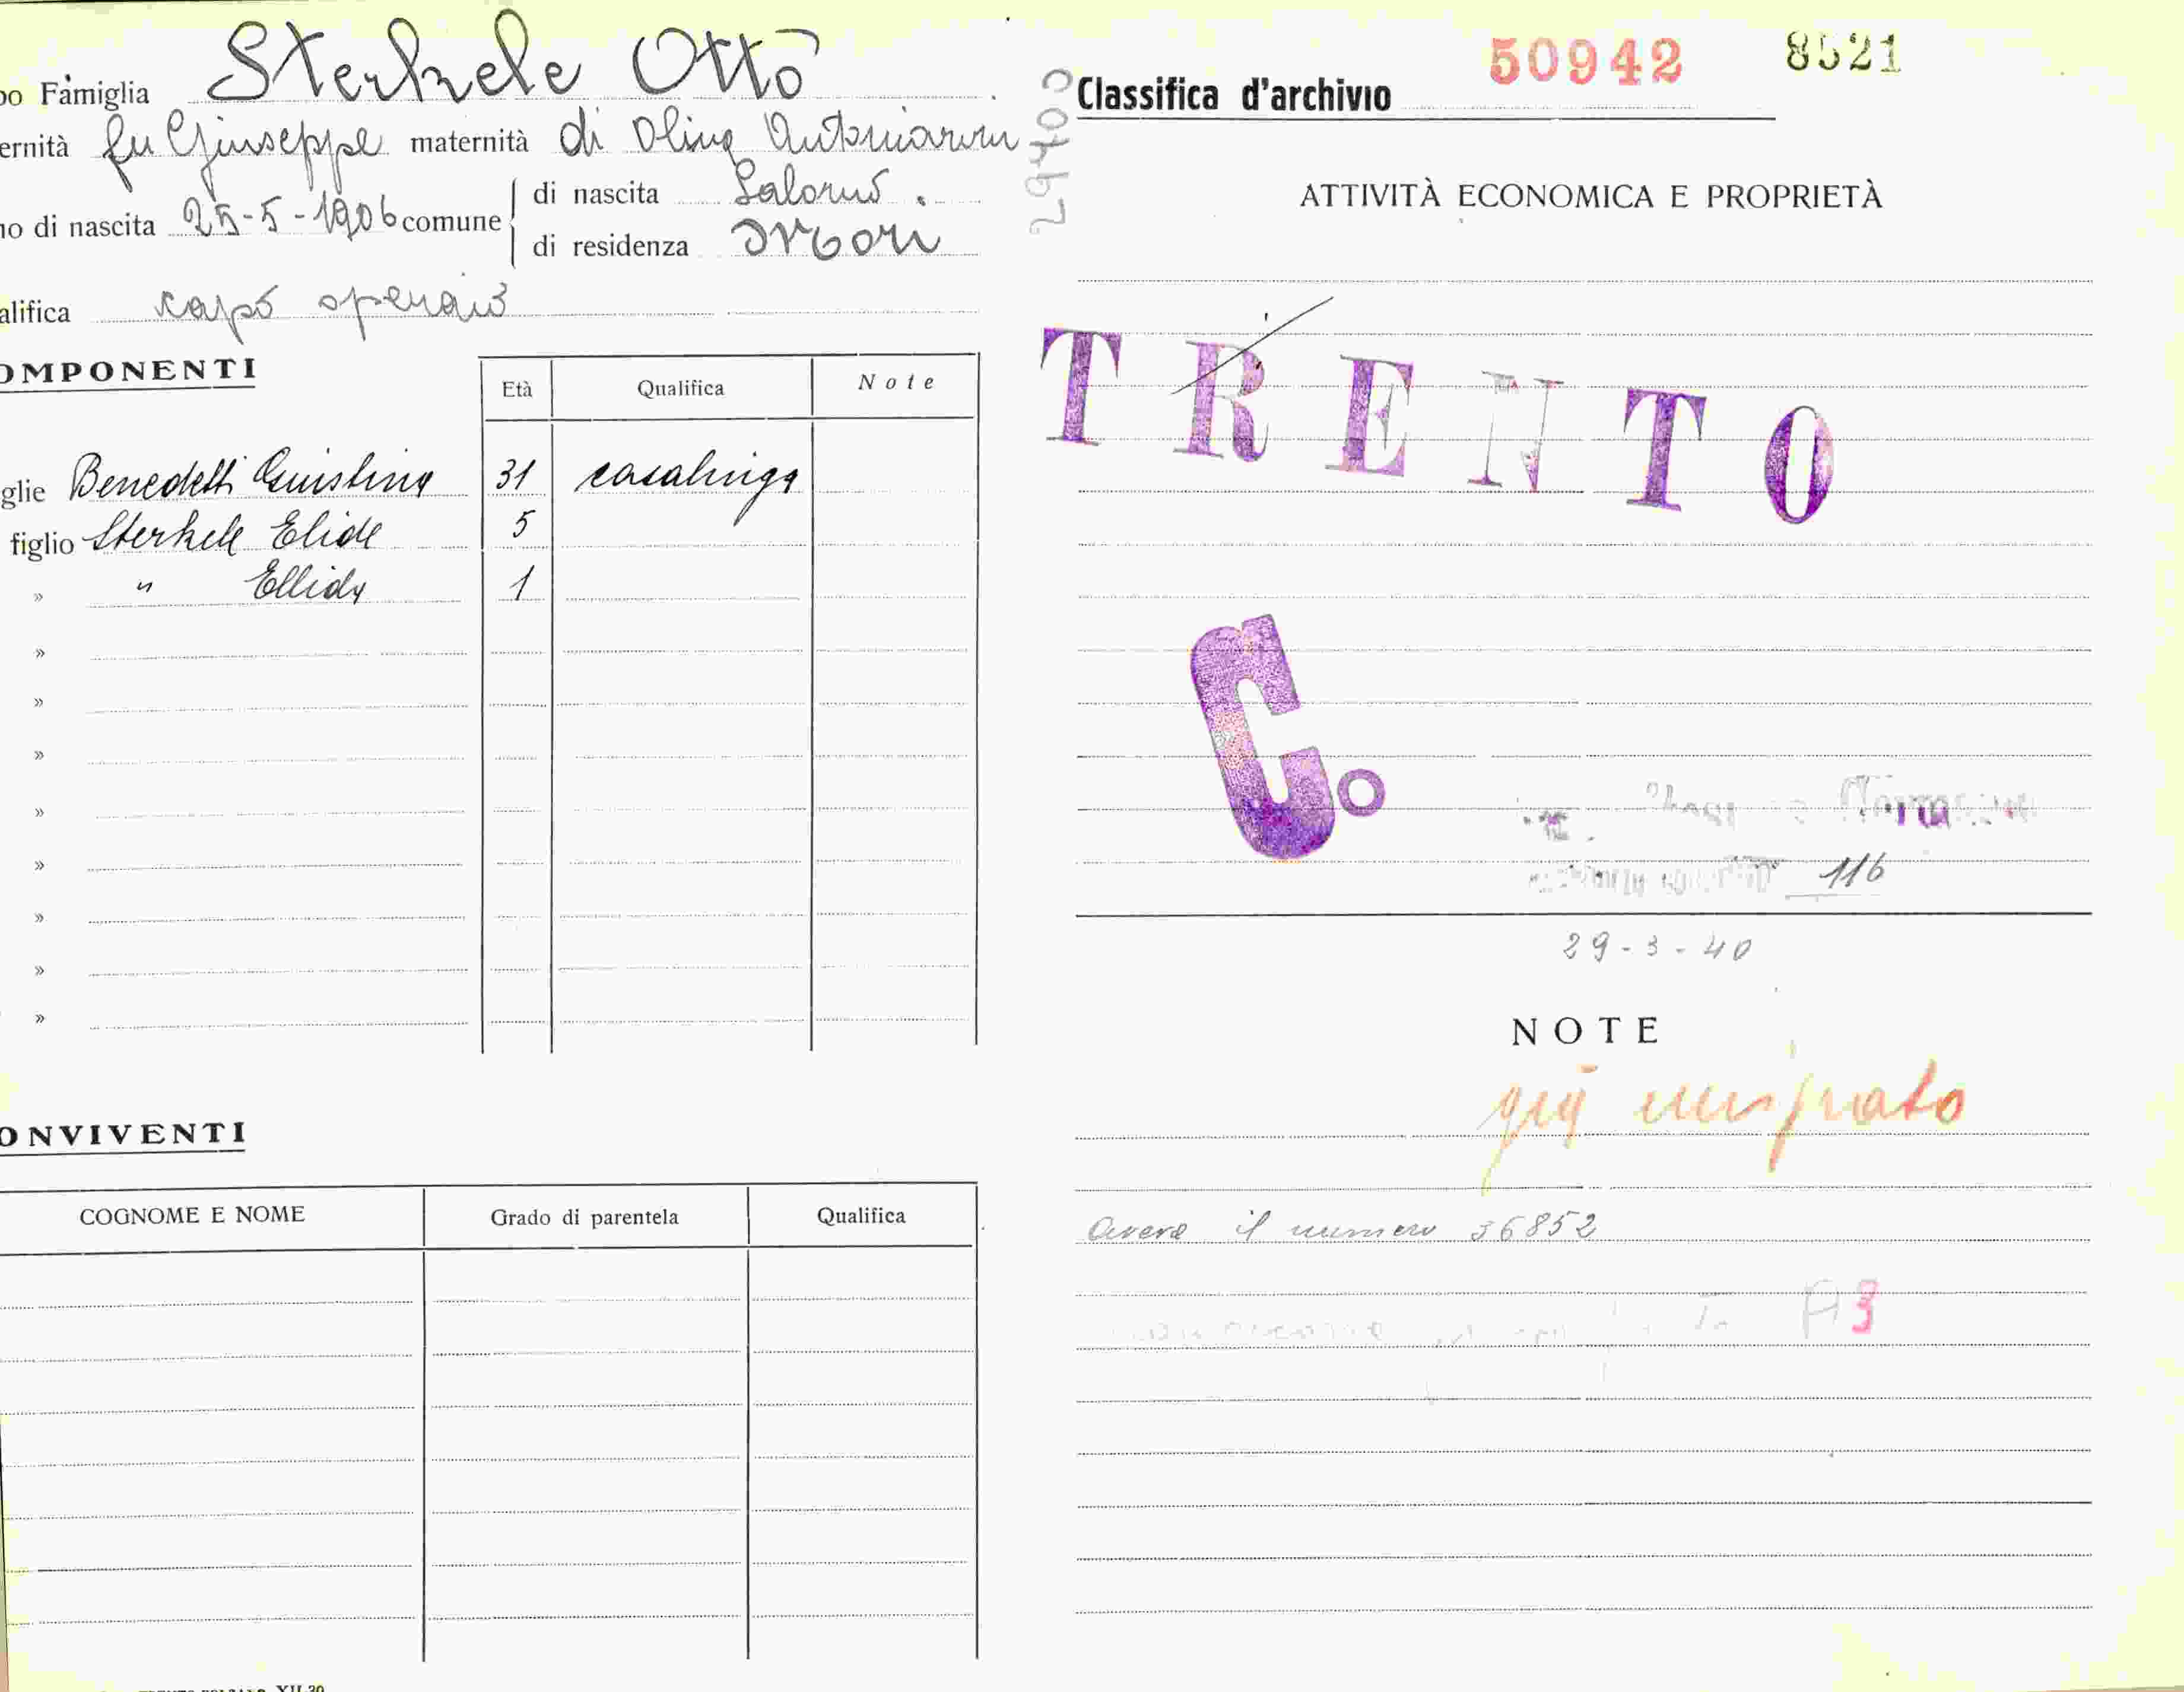 po Famiglia Sterkele Otto
ernità fu Giuseppe maternità di Olina Antoniazzi
no di nascita 25-5-1906 comune di nascita Salorno
di residenza Mori
alifica capo operaio
OMPONENTI
Età Qualifica Note
glie Benedetti Giustina 31 casalinga
figlio Sterkele Elide 5
» " Ellida 1
»
»
»
»
»
»
»
»
ONVIVENTI
COGNOME E NOME Grado di parentela Qualifica
XII-39
297400
Classifica d'archivio 50942 8521
ATTIVITÀ ECONOMICA E PROPRIETÀ
TRENTO
Co
116
29-3-40
NOTE
già emigrato
avere il numero 36852
A3